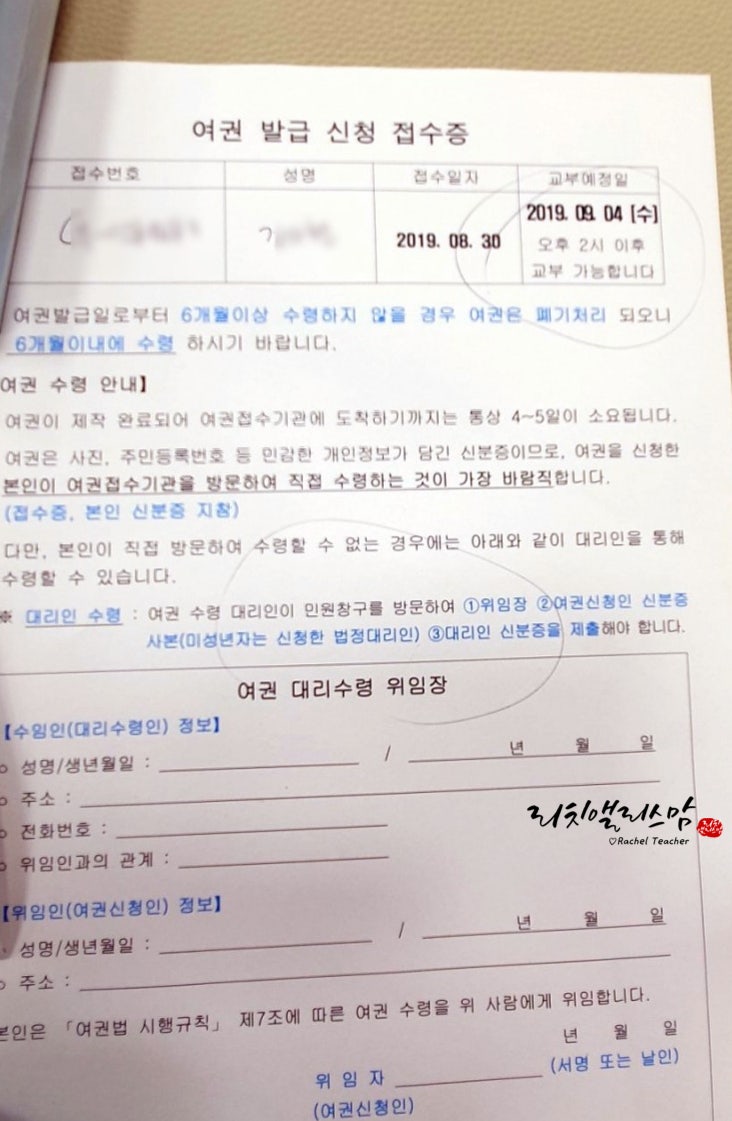 여권 발급 신청 접수증
접수번호 성명 접수일자 교부예정일
2019. 08. 30
2019. 09. 04 [수]
오후 2시 이후
교부 가능합니다
여권발급일로부터 6개월이상 수령하지 않을 경우 여권은 폐기처리 되오니
6개월이내에 수령 하시기 바랍니다.
여권 수령 안내】
여권이 제작 완료되어 여권접수기관에 도착하기까지는 통상 4~5일이 소요됩니다.
여권은 사진, 주민등록번호 등 민감한 개인정보가 담긴 신분증이므로, 여권을 신청한
본인이 여권접수기관을 방문하여 직접 수령하는 것이 가장 바람직합니다.
(접수증, 본인 신분증 지참)
다만, 본인이 직접 방문하여 수령할 수 없는 경우에는 아래와 같이 대리인을 통해
수령할 수 있습니다.
※ 대리인 수령 : 여권 수령 대리인이 민원창구를 방문하여 ①위임장 ②여권신청인 신분증
사본(미성년자는 신청한 법정대리인) ③대리인 신분증을 제출해야 합니다.
여권 대리수령 위임장
【수임인(대리수령인) 정보】
○ 성명/생년월일 : / 년 월 일
○ 주소 :
○ 전화번호 :
○ 위임인과의 관계 :
리치앨리스맘
♡Rachel Teacher
【위임인(여권신청인) 정보】
성명/생년월일 : / 년 월 일
○ 주소 :
본인은 「여권법 시행규칙」 제7조에 따른 여권 수령을 위 사람에게 위임합니다.
년 월 일
위 임 자 (서명 또는 날인)
(여권신청인)